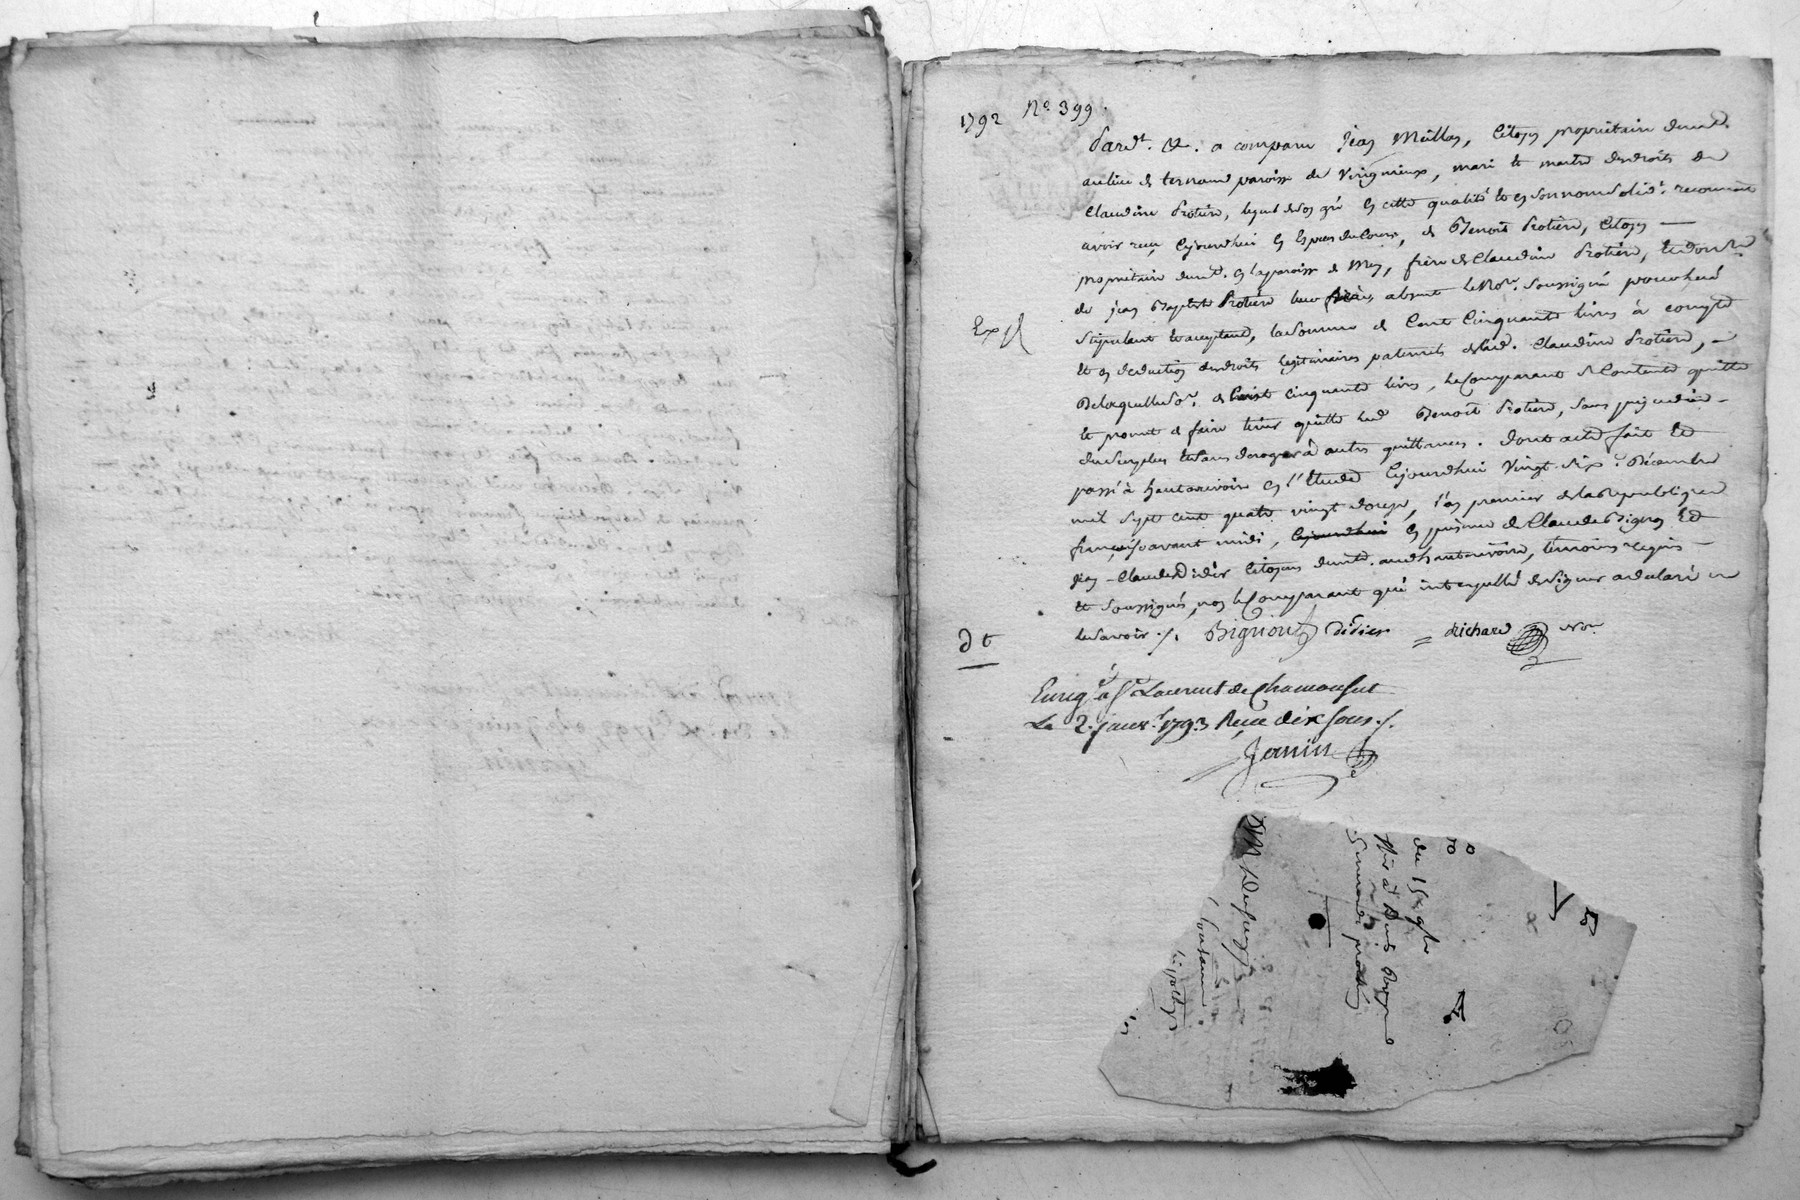 1792 N.o 399.
Pard.t &c. a comparu jean Mullas, Citoyen propriétaire demt.
au lieu de ternand paroisse de Virigneux, mari et maitre des droits de
Claudine Protière, lequel de son gré en cette qualité et en son nom solid.t reconnait
avoir reçu cejourd'hui en Espèces de Cours, de Benoit Protière, Citoyen
propriétaire demt. en la paroisse de Meys, frère de Claudine Protière, et donat.re
de jean Baptiste Protière leur absent le No.re soussigné pour lui
stipulant et acceptant, la somme de Cent Cinquante livres à compte
et en déduction des droits légitimaires paternels de lad. Claudine Protière,
De laquelle so.e de Cent cinquante livres, le Comparant se Contente quitte
et promet de faire tenir quitte led Benoit Protière, sans préjudice
du Surplus et sans déroger à autres quittances. Dont acte fait et
passé à hauterivoire en l'étude Cejourd'hui Vingt-six Décembre
mil sept cent quatre vingt douze, l'an premier de la République
française avant midi, cejourdhui en présence de Claude Bignon et
jean-Claude Didier Citoyens demt. aud hauterivoire, témoins requis
et soussignés, non le Comparant qui interpellé de signer a déclaré ne
le savoir ./. Bignon Didier = Richard No.re
Ex
dt
Enreg.é à S.t Laurent de Chamousset
Le 2. janv.r 1793 Reçu dix sous ./.
Janin
du 15 xbre